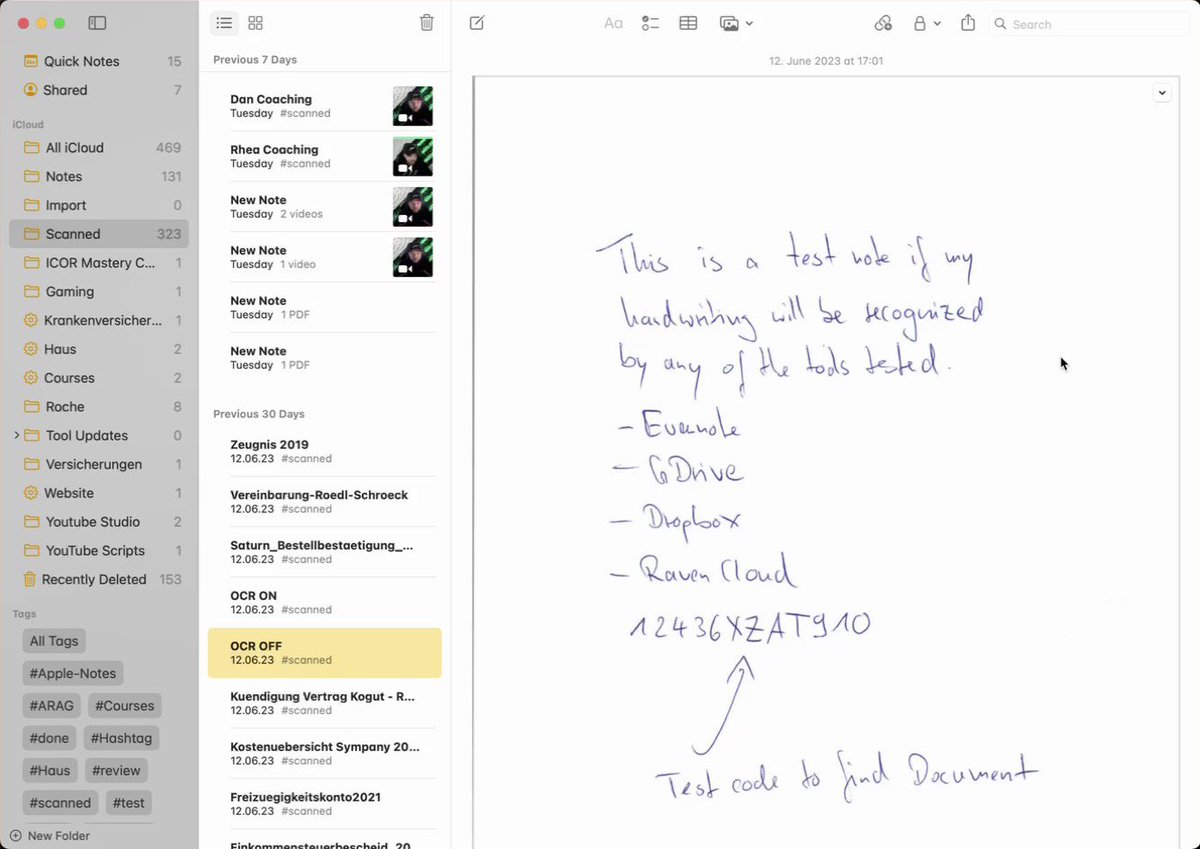 Quick Notes 15
Shared 7
iCloud
All iCloud 469
Notes 131
Import 0
Scanned 323
ICOR Mastery C... 1
Gaming 1
Krankenversicher... 1
Haus 2
Courses 2
Roche 8
Tool Updates 0
Versicherungen 1
Website 1
Youtube Studio 2
YouTube Scripts 1
Recently Deleted 153
Tags
All Tags
#Apple-Notes
#ARAG #Courses
#done #Hashtag
#Haus #review
#scanned #test
New Folder
Previous 7 Days
Dan Coaching
Tuesday #scanned
Rhea Coaching
Tuesday #scanned
New Note
Tuesday 2 videos
New Note
Tuesday 1 video
New Note
Tuesday 1 PDF
New Note
Tuesday 1 PDF
Previous 30 Days
Zeugnis 2019
12.06.23 #scanned
Vereinbarung-Roedl-Schroeck
12.06.23 #scanned
Saturn_Bestellbestaetigung_...
12.06.23 #scanned
OCR ON
12.06.23 #scanned
OCR OFF
12.06.23 #scanned
Kuendigung Vertrag Kogut - R...
12.06.23 #scanned
Kostenuebersicht Sympany 20...
12.06.23 #scanned
Freizuegigkeitskonto2021
12.06.23 #scanned
Einkommensteuerbescheid_20
Aa
Search
12. June 2023 at 17:01
This is a test note if my
handwriting will be recognized
by any of the tools tested.
- Evernote
- GDrive
- Dropbox
- Raven Cloud
12436XZAT910
Test code to find Document